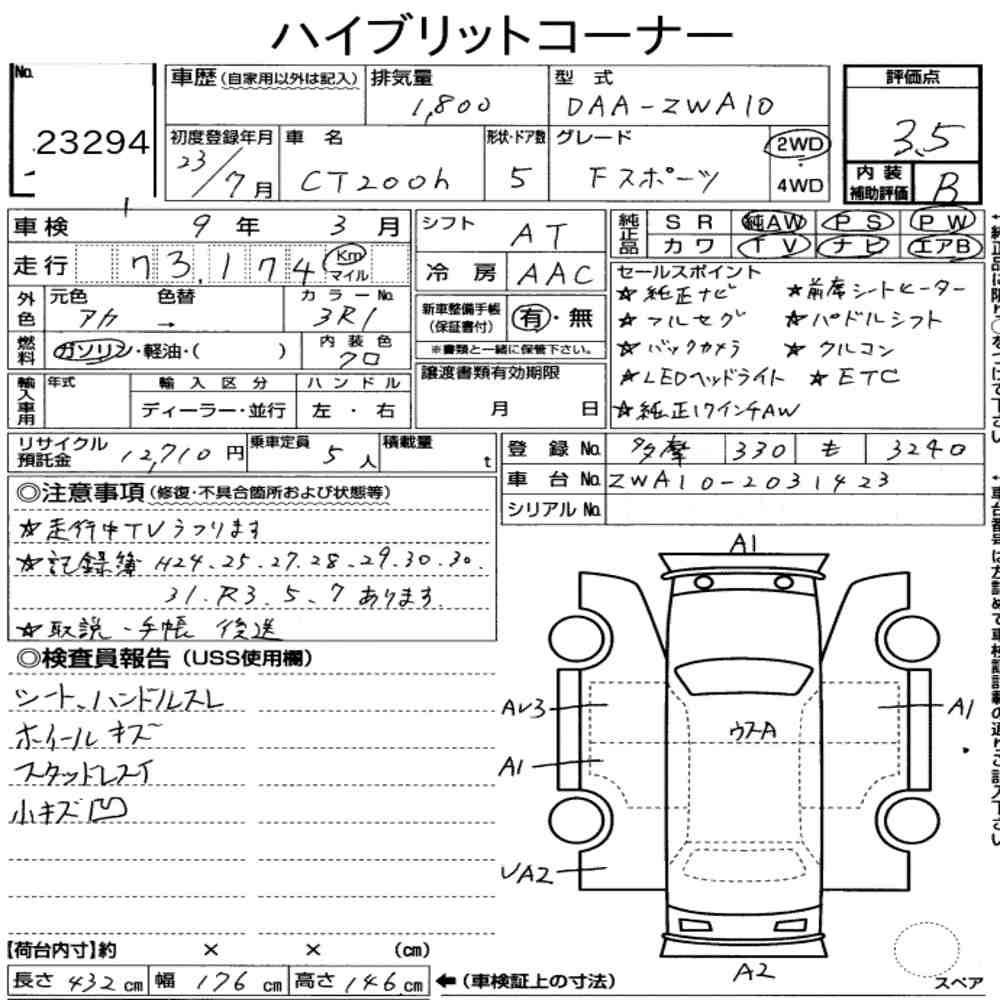 ハイブリットコーナー
No.
23294
車歴(自家用以外は記入)
排気量
1,800
型式
DAA-ZWA10
評価点
3.5
初度登録年月
23/7月
車名
CT200h
形状・ドア数
5
グレード
Fスポーツ
2WD
4WD
内装
補助評価
B
車検 9年 3月
走行 73,174 Km マイル
外色
元色 アカ
色替 →
カラーNo. 3R1
燃料
ガソリン・軽油・( )
内装色 クロ
輸入車用
年式
輸入区分
ディーラー・並行
ハンドル
左・右
シフト AT
冷房 AAC
新車整備手帳
(保証書付)
有・無
※書類と一緒に保管下さい。
譲渡書類有効期限
月 日
純正品
SR 純AW PS PW
カワ TV ナビ エアB
セールスポイント
☆純正ナビ ☆前席シートヒーター
☆フルセグ ☆パドルシフト
☆バックカメラ ☆クルコン
☆LEDヘッドライト ☆ETC
☆純正17インチAW
リサイクル
預託金
12,710円
乗車定員 5人
積載量 t
登録No. 多摩 330 も 3240
車台No. ZWA10-2031423
シリアルNo.
◎注意事項(修復・不具合箇所および状態等)
☆走行中TVうつります
☆記録簿 H24.25.27.28.29.30.30.
31.R3.5.7あります.
☆取説・手帳 後送
◎検査員報告(USS使用欄)
シート、ハンドルスレ
ホイールキズ
スタッドレスイ
小キズ凹
A1
AU3
A1
UA2
ウスA
A1
A2
スペア
【荷台内寸】約 × × (cm)
長さ 432 cm 幅 176 cm 高さ 146 cm
←(車検証上の寸法)